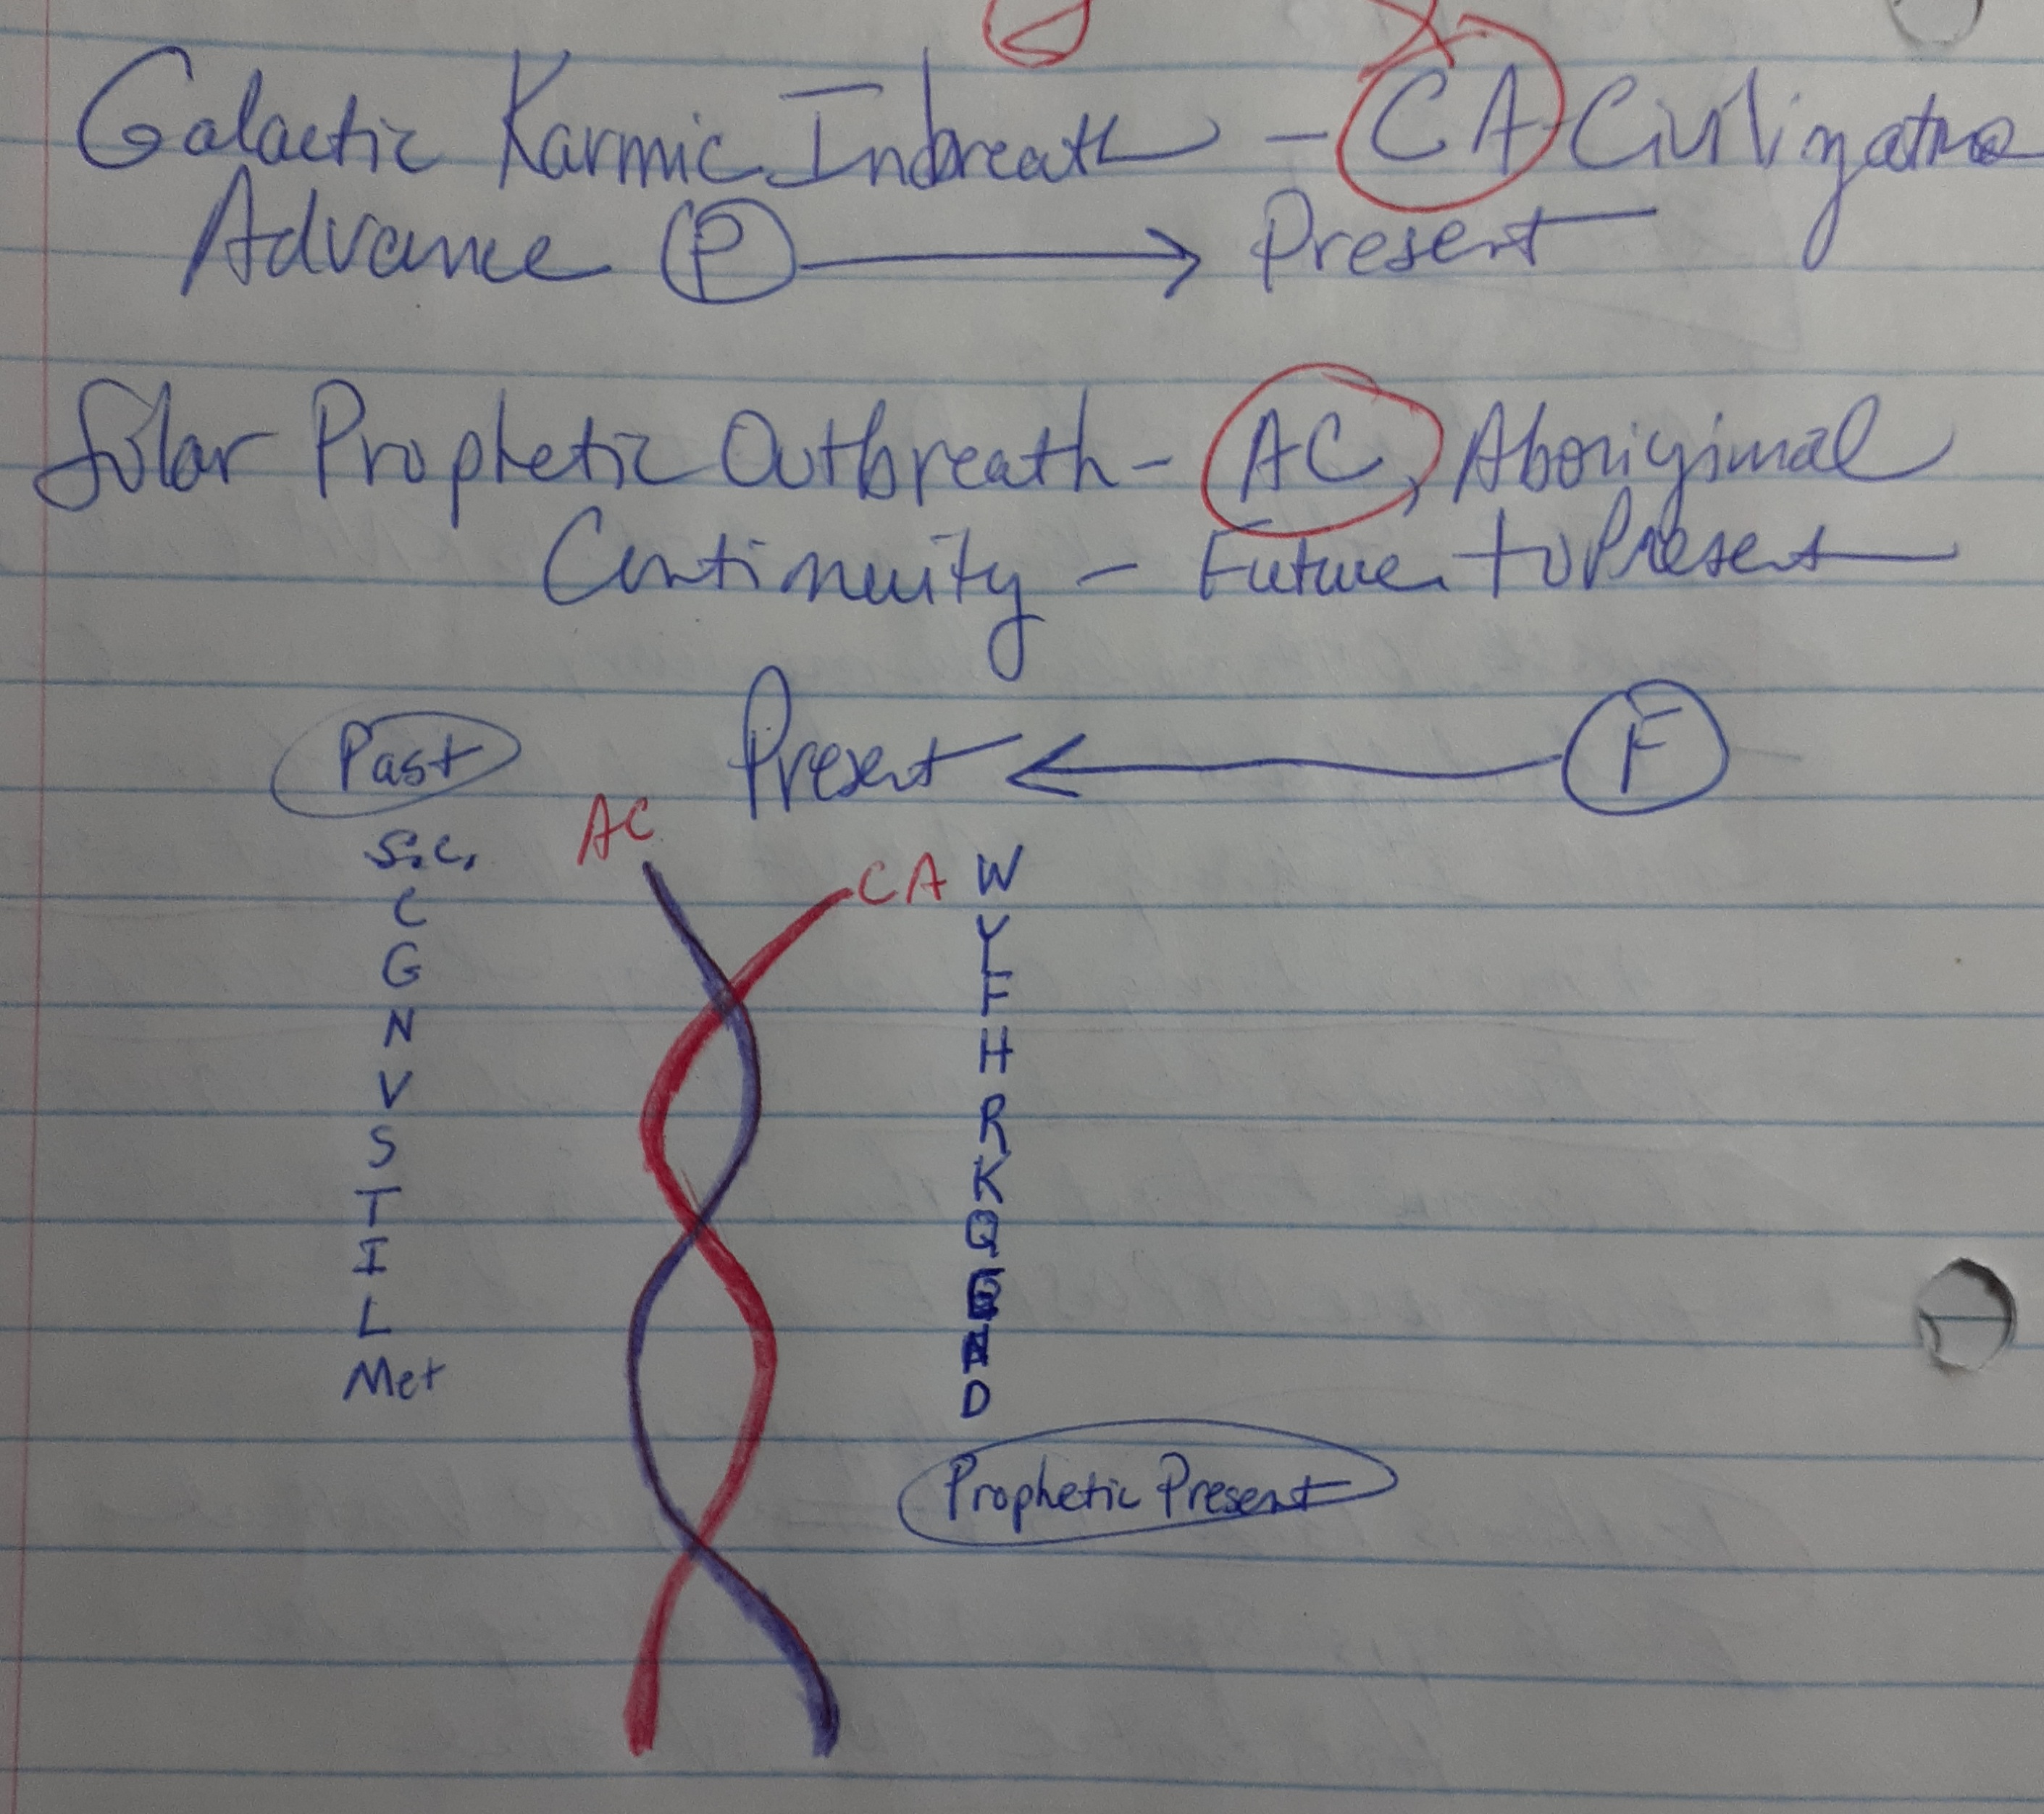 Galactic Karmic Inbreath - CA Civilization
Advance P → Present
Solar Prophetic Outbreath - AC, Aboriginal
Continuity - Future to Present
Past Present ← F
AC
S.C. CA W
C Y
G F
N H
V R
S K
T Q
I
L
Met D
Prophetic Present